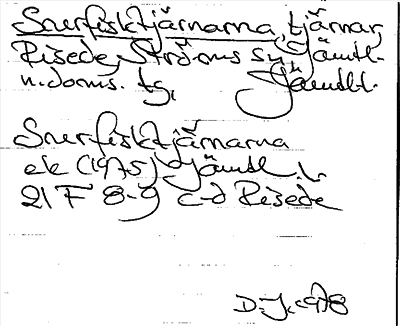 Snerfisktjärnarna, tjärnar,
Risede, Ströms sn, Jämtl.
n. doms. tg, Jämtl.l.
Snerfisktjärnarna
ek (1975) Jämtl. l.
21 F 8-9 c-d Risede
D.J. 1978